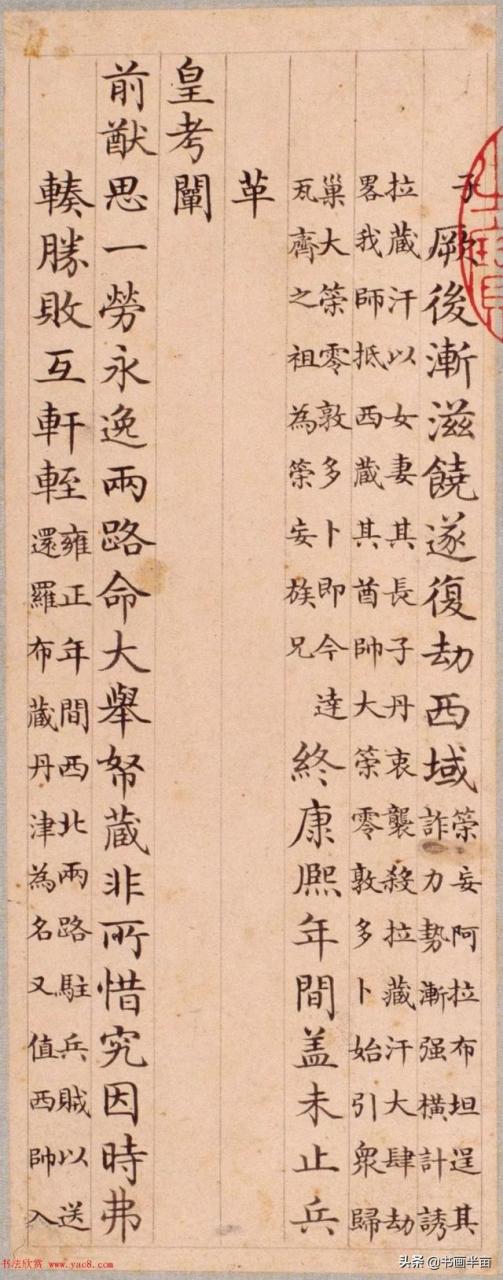 子厥後漸滋饒遂復劫西域
策妄阿拉布坦逞其
詐力勢漸强橫計誘
拉藏汗以女妻其長子丹衷襲殺拉藏汗大肆劫
畧我師抵西藏其酋帥大策零敦多卜始引衆歸
巢大策零敦多卜即今達
瓦齊之祖為策妄族兄
終康熙年間盖未止兵
革
皇考闡
前猷思一勞永逸兩路命大舉帑藏非所惜究因時弗
輳勝敗互軒輊
雍正年間西北兩路駐兵賊以送
還羅布藏丹津為名又值西帥入
书法欣赏 www.yac8.com
头条 @书画半亩